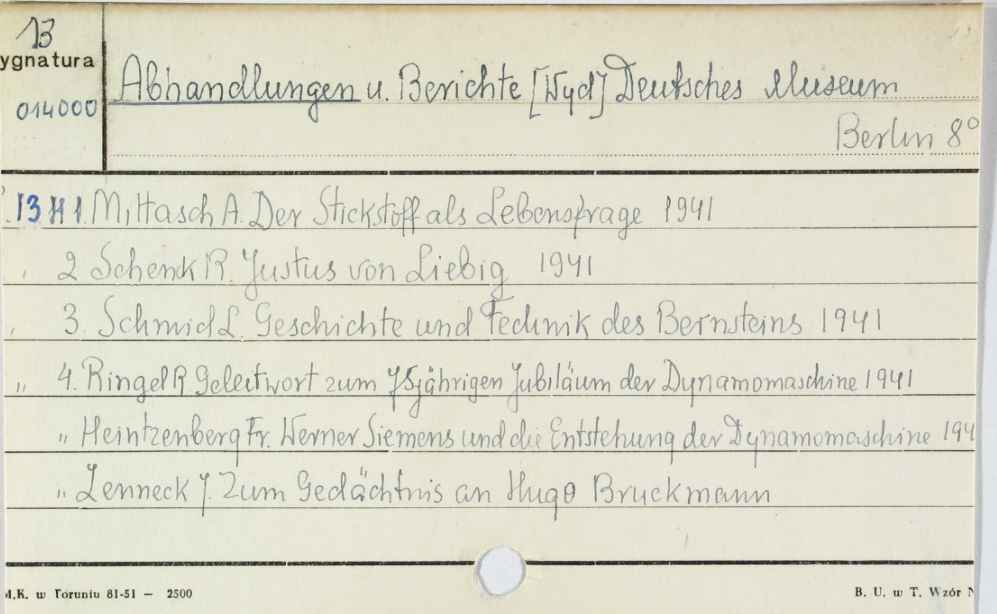 13
ygnatura
014000
Abhandlungen u. Berichte [Wyd] Deutsches Museum
Berlin 8°
13 H 1. Mittasch A. Der Stickstoff als Lebensfrage 1941
2 Schenk R. Justus von Liebig 1941
3. Schmid L. Geschichte und Technik des Bernsteins 1941
„ 4. Ringel R Geleitwort zum 75jährigen Jubiläum der Dynamomaschine 1941
„ Heintzenberg Fr. Werner Siemens und die Entstehung der Dynamomaschine 194
„ Zenneck J. Zum Gedächtnis an Hugo Bruckmann
M.K. w Toruniu 81-51 — 2500
B. U. w T. Wzór N